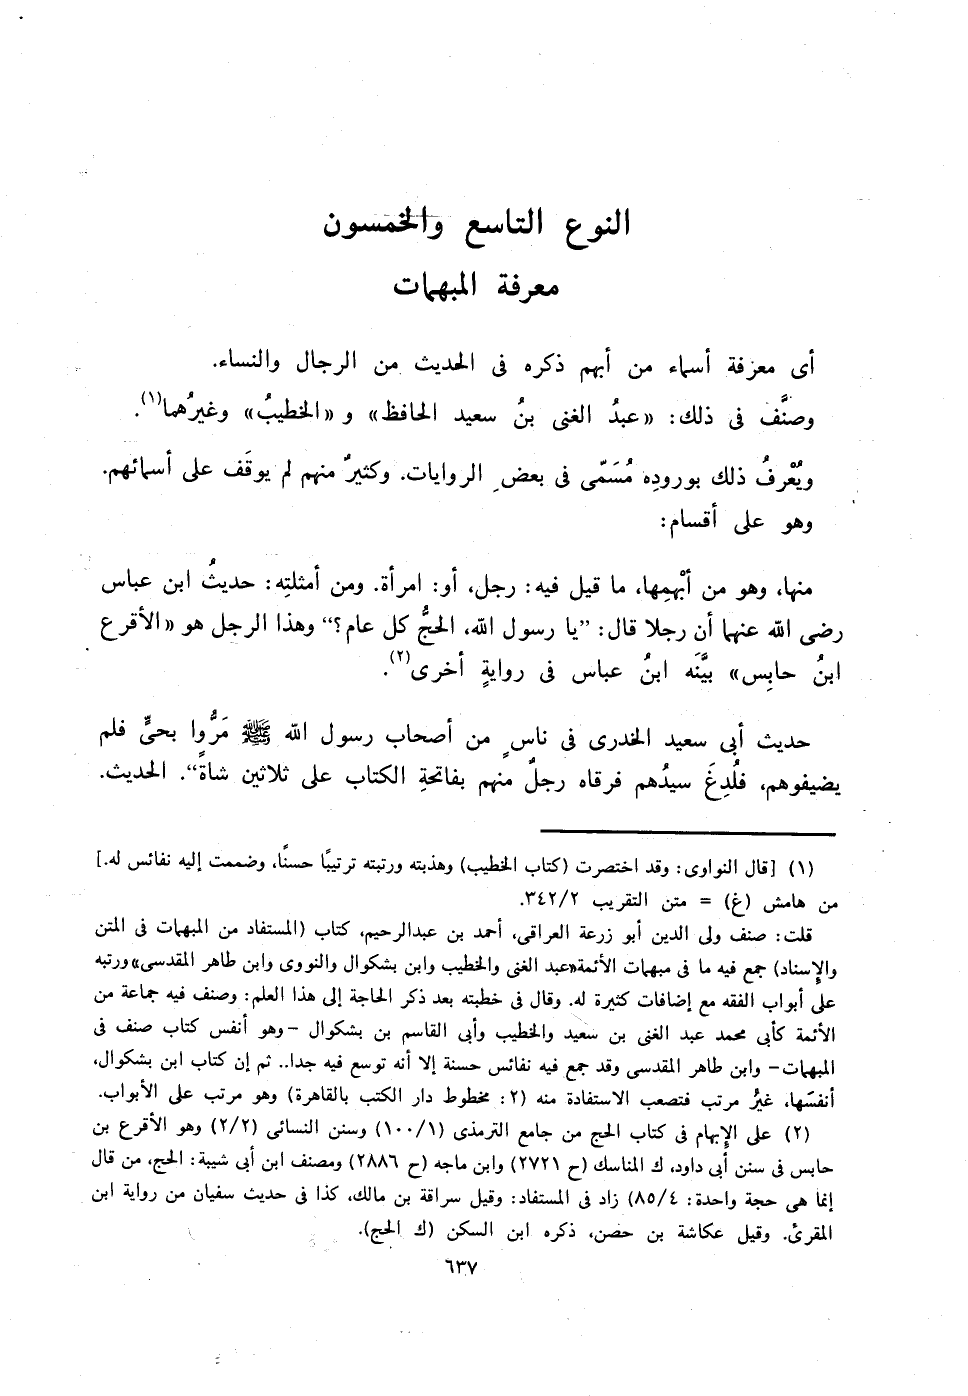 النوع التاسع والخمسون
معرفة المبهمات
أى معرفة أسماء من أبهم ذكره فى الحديث من الرجال والنساء.
وصنَّف فى ذلك: «عبدُ الغنى بنُ سعيد الحافظ» و «الخطيبُ» وغيرُهما(١).
ويُعْرفُ ذلك بورودِه مُسَمّى فى بعضِ الروايات. وكثيرٌ منهم لم يوقَف على أسمائهم.
وهو على أقسام:
منها، وهو من أبْهمِها، ما قيل فيه: رجل، أو: امرأة. ومن أمثلتِه: حديثُ ابن عباس
رضى الله عنهما أن رجلا قال: ”يا رسول الله، الحجُّ كل عام؟“ وهذا الرجل هو «الأقرع
ابنُ حابِس» بيَّنَه ابنُ عباس فى روايةٍ أخرى(٢).
حديث أبى سعيد الخدرى فى ناسٍ من أصحاب رسول الله ﷺ مَرُّوا بحىٍّ فلم
يضيفوهم، فلُدِغَ سيدُهم فرقاه رجلٌ منهم بفاتحةِ الكتاب على ثلاثين شاةً“. الحديث.
(١) [قال النواوى: وقد اختصرت (كتاب الخطيب) وهذبته ورتبته ترتيبًا حسنًا، وضممت إليه نفائس له.]
من هامش (غ) = متن التقريب ٣٤٢/٢.
قلت: صنف ولى الدين أبو زرعة العراقى، أحمد بن عبدالرحيم، كتاب (المستفاد من المبهمات فى المتن
والإسناد) جمع فيه ما فى مبهمات الأئمة«عبد الغنى والخطيب وابن بشكوال والنووى وابن طاهر المقدسى»ورتبه
على أبواب الفقه مع إضافات كثيرة له. وقال فى خطبته بعد ذكر الحاجة إلى هذا العلم: وصنف فيه جماعة من
الأئمة كأبى محمد عبد الغنى بن سعيد والخطيب وأبى القاسم بن بشكوال -وهو أنفس كتاب صنف فى
المبهمات- وابن طاهر المقدسى وقد جمع فيه نفائس حسنة إلا أنه توسع فيه جدا.. ثم إن كتاب ابن بشكوال،
أنفسَها، غيرُ مرتب فتصعب الاستفادة منه (٢: مخطوط دار الكتب بالقاهرة) وهو مرتب على الأبواب.
(٢) على الإبهام فى كتاب الحج من جامع الترمذى (١٠٠/١) وسنن النسائى (٢/٢) وهو الأقرع بن
حابس فى سنن أبى داود، ك المناسك (ح ٢٧٢١) وابن ماجه (ح ٢٨٨٦) ومصنف ابن أبى شيبة: الحج، من قال
إنما هى حجة واحدة: ٨٥/٤) زاد فى المستفاد: وقيل سراقة بن مالك، كذا فى حديث سفيان من رواية ابن
المقرئ. وقيل عكاشة بن حصن، ذكره ابن السكن (ك الحج).
٦٣٧